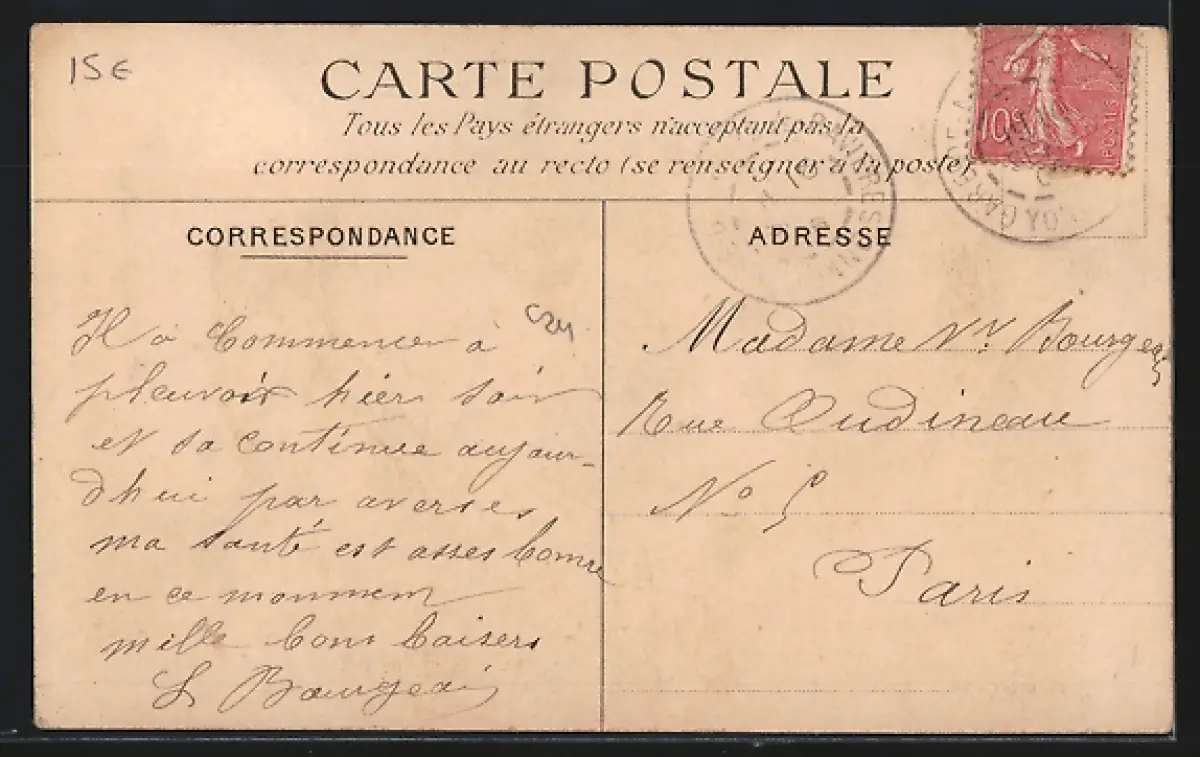 15€
CARTE POSTALE
Tous les Pays étrangers n'acceptant pas la
correspondance au recto (se renseigner à la poste)
10c
POSTES
CORRESPONDANCE
Il a Commencer à
pleuvoir hier soir
et sa continue aujour-
dhui par averses
ma santé est asses bonne
en ce monment
mille bons baisers
L Bourgeois
ADRESSE
Madame Vve Bourgeois
Rue Oudineau
No 5
Paris